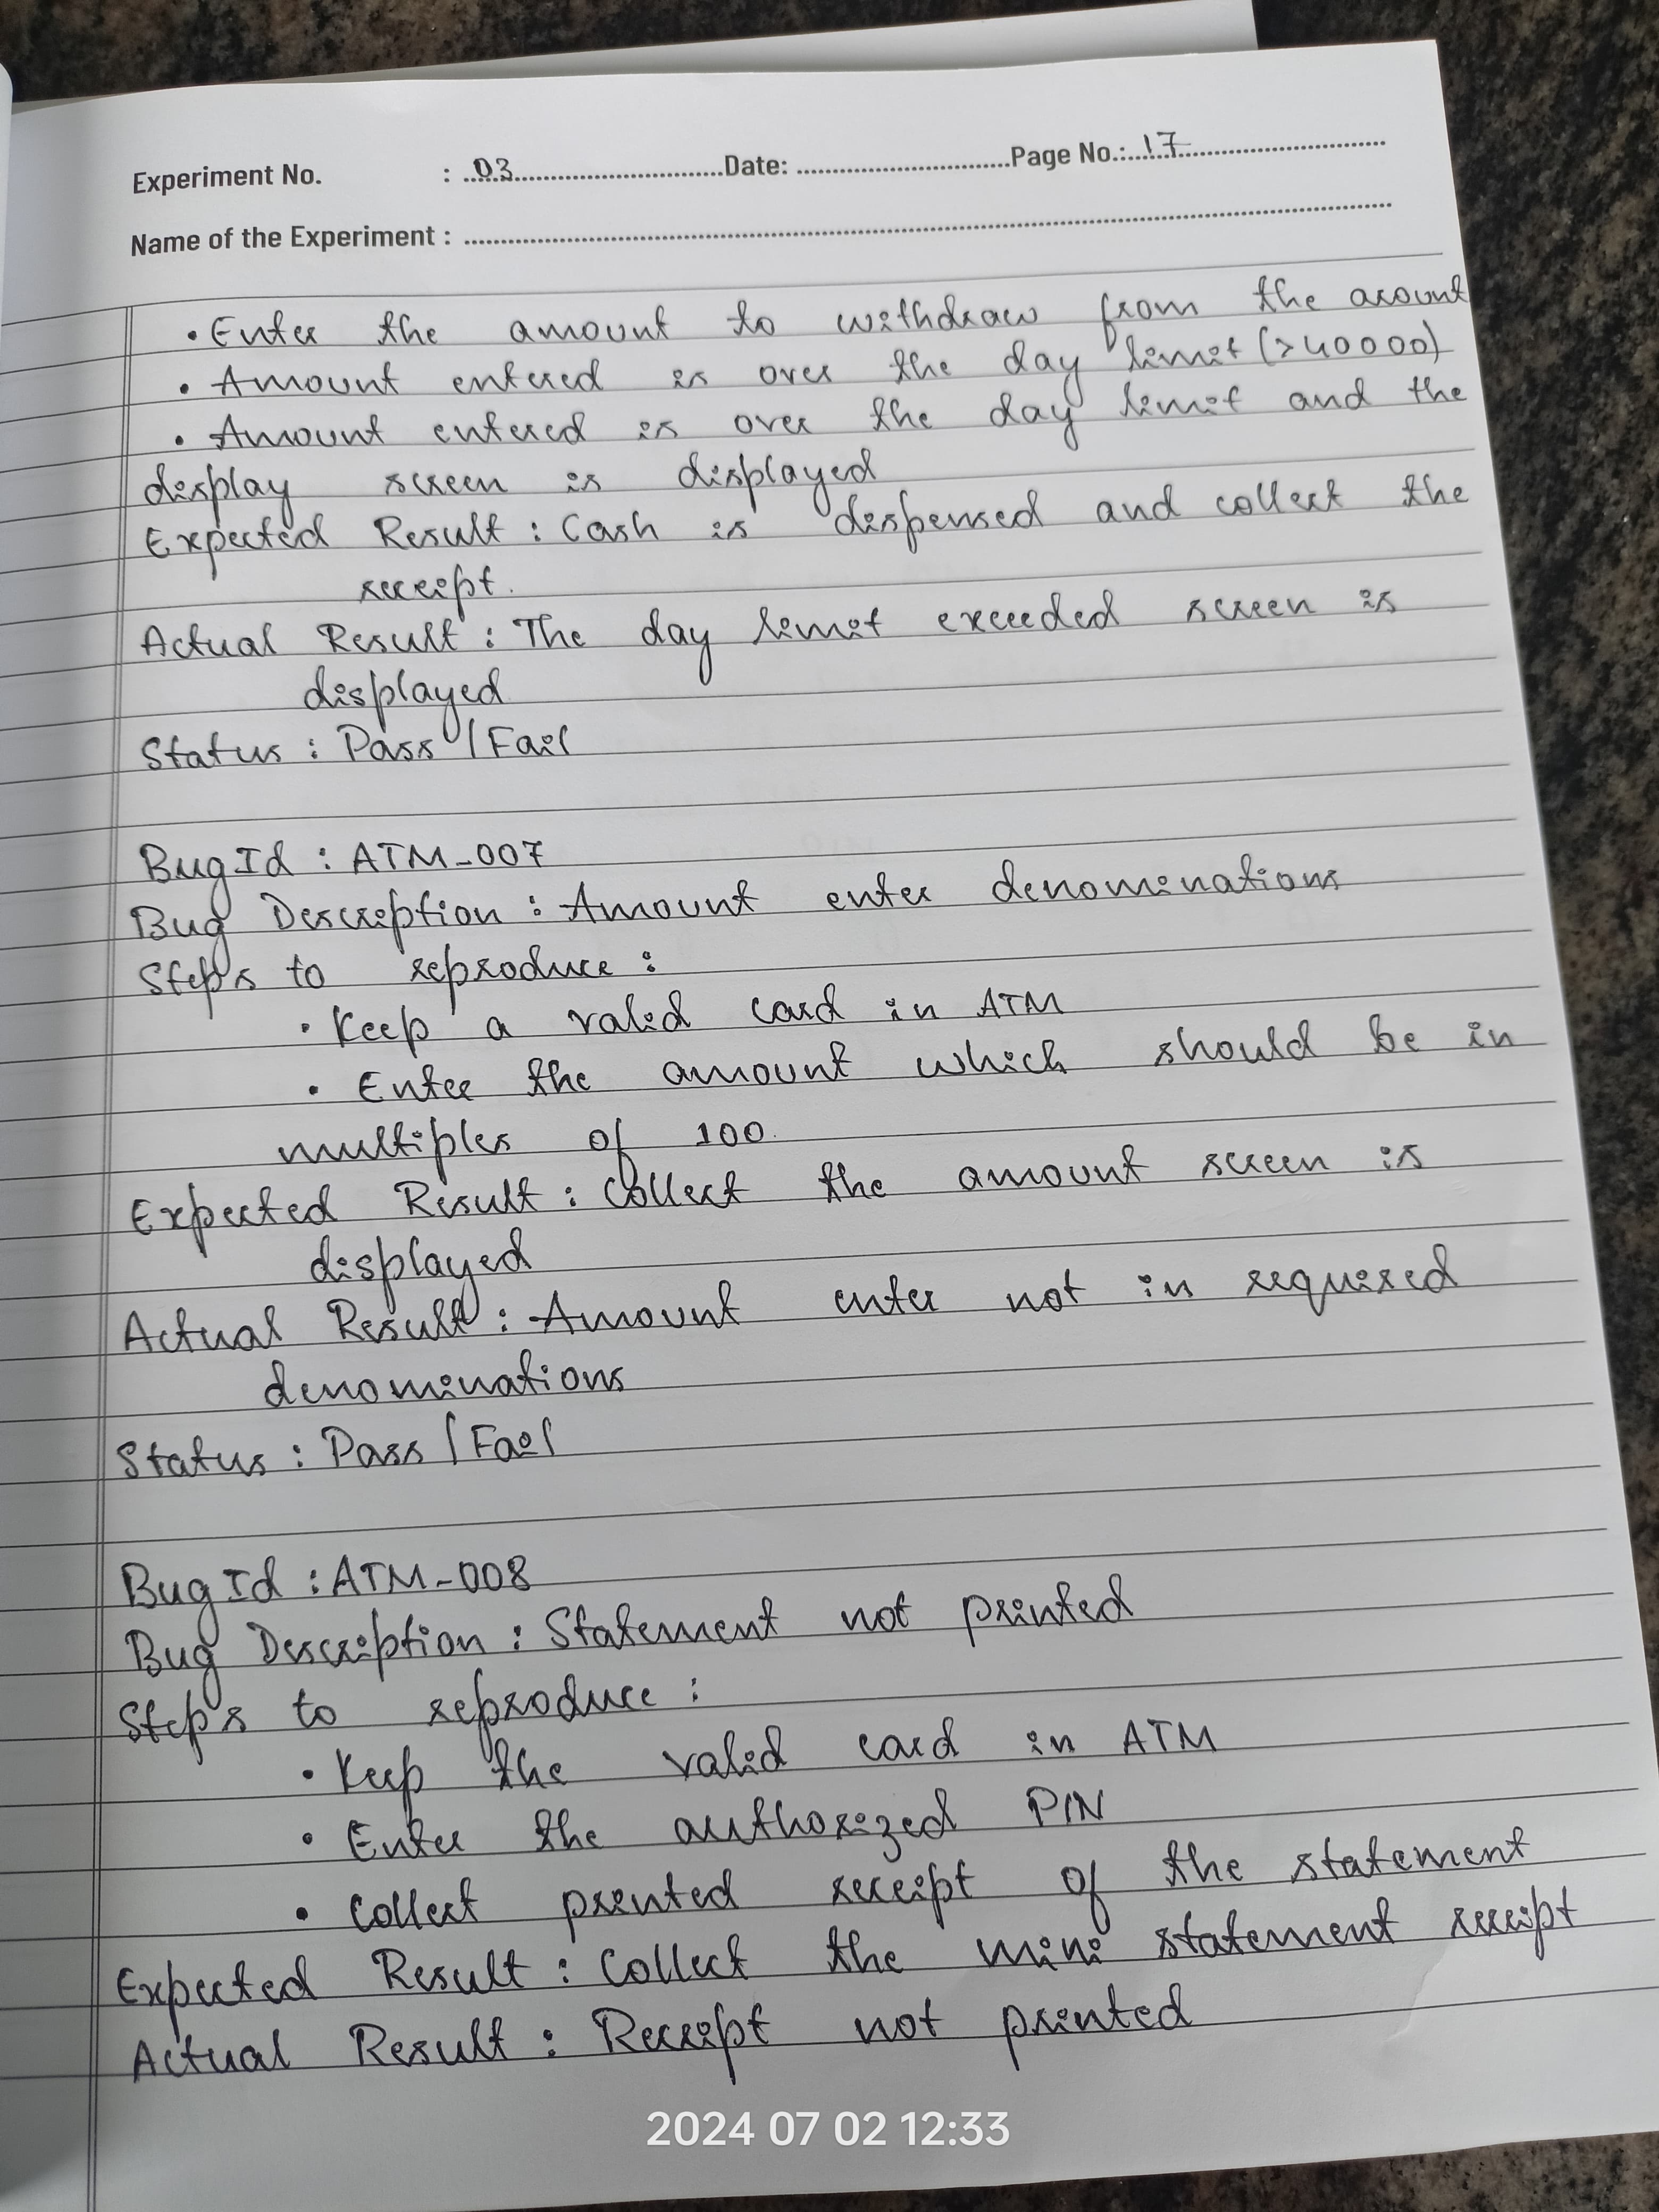 Experiment No. : 03 Date: Page No.: 17
Name of the Experiment :
• Enter the amount to withdraw from the acount
• Amount entered is over the day limit (>40000)
• Amount entered is over the day limit and the
display screen is displayed
Expected Result : Cash is dispensed and collect the
receipt.
Actual Result : The day limit exceeded screen is
displayed
Status : Pass / Fail
Bug Id : ATM_007
Bug Description : Amount enter denominations
Steps to reproduce :
• Keep a valid card in ATM
• Enter the amount which should be in
multiples of 100.
Expected Result : Collect the amount screen is
displayed
Actual Result : Amount enter not in required
denominations
Status : Pass / Fail
Bug Id : ATM_008
Bug Description : Statement not printed
Steps to reproduce :
• Keep the valid card in ATM
• Enter the authorized PIN
• Collect printed receipt of the statement
Expected Result : Collect the mini statement receipt
Actual Result : Receipt not printed
2024 07 02 12:33